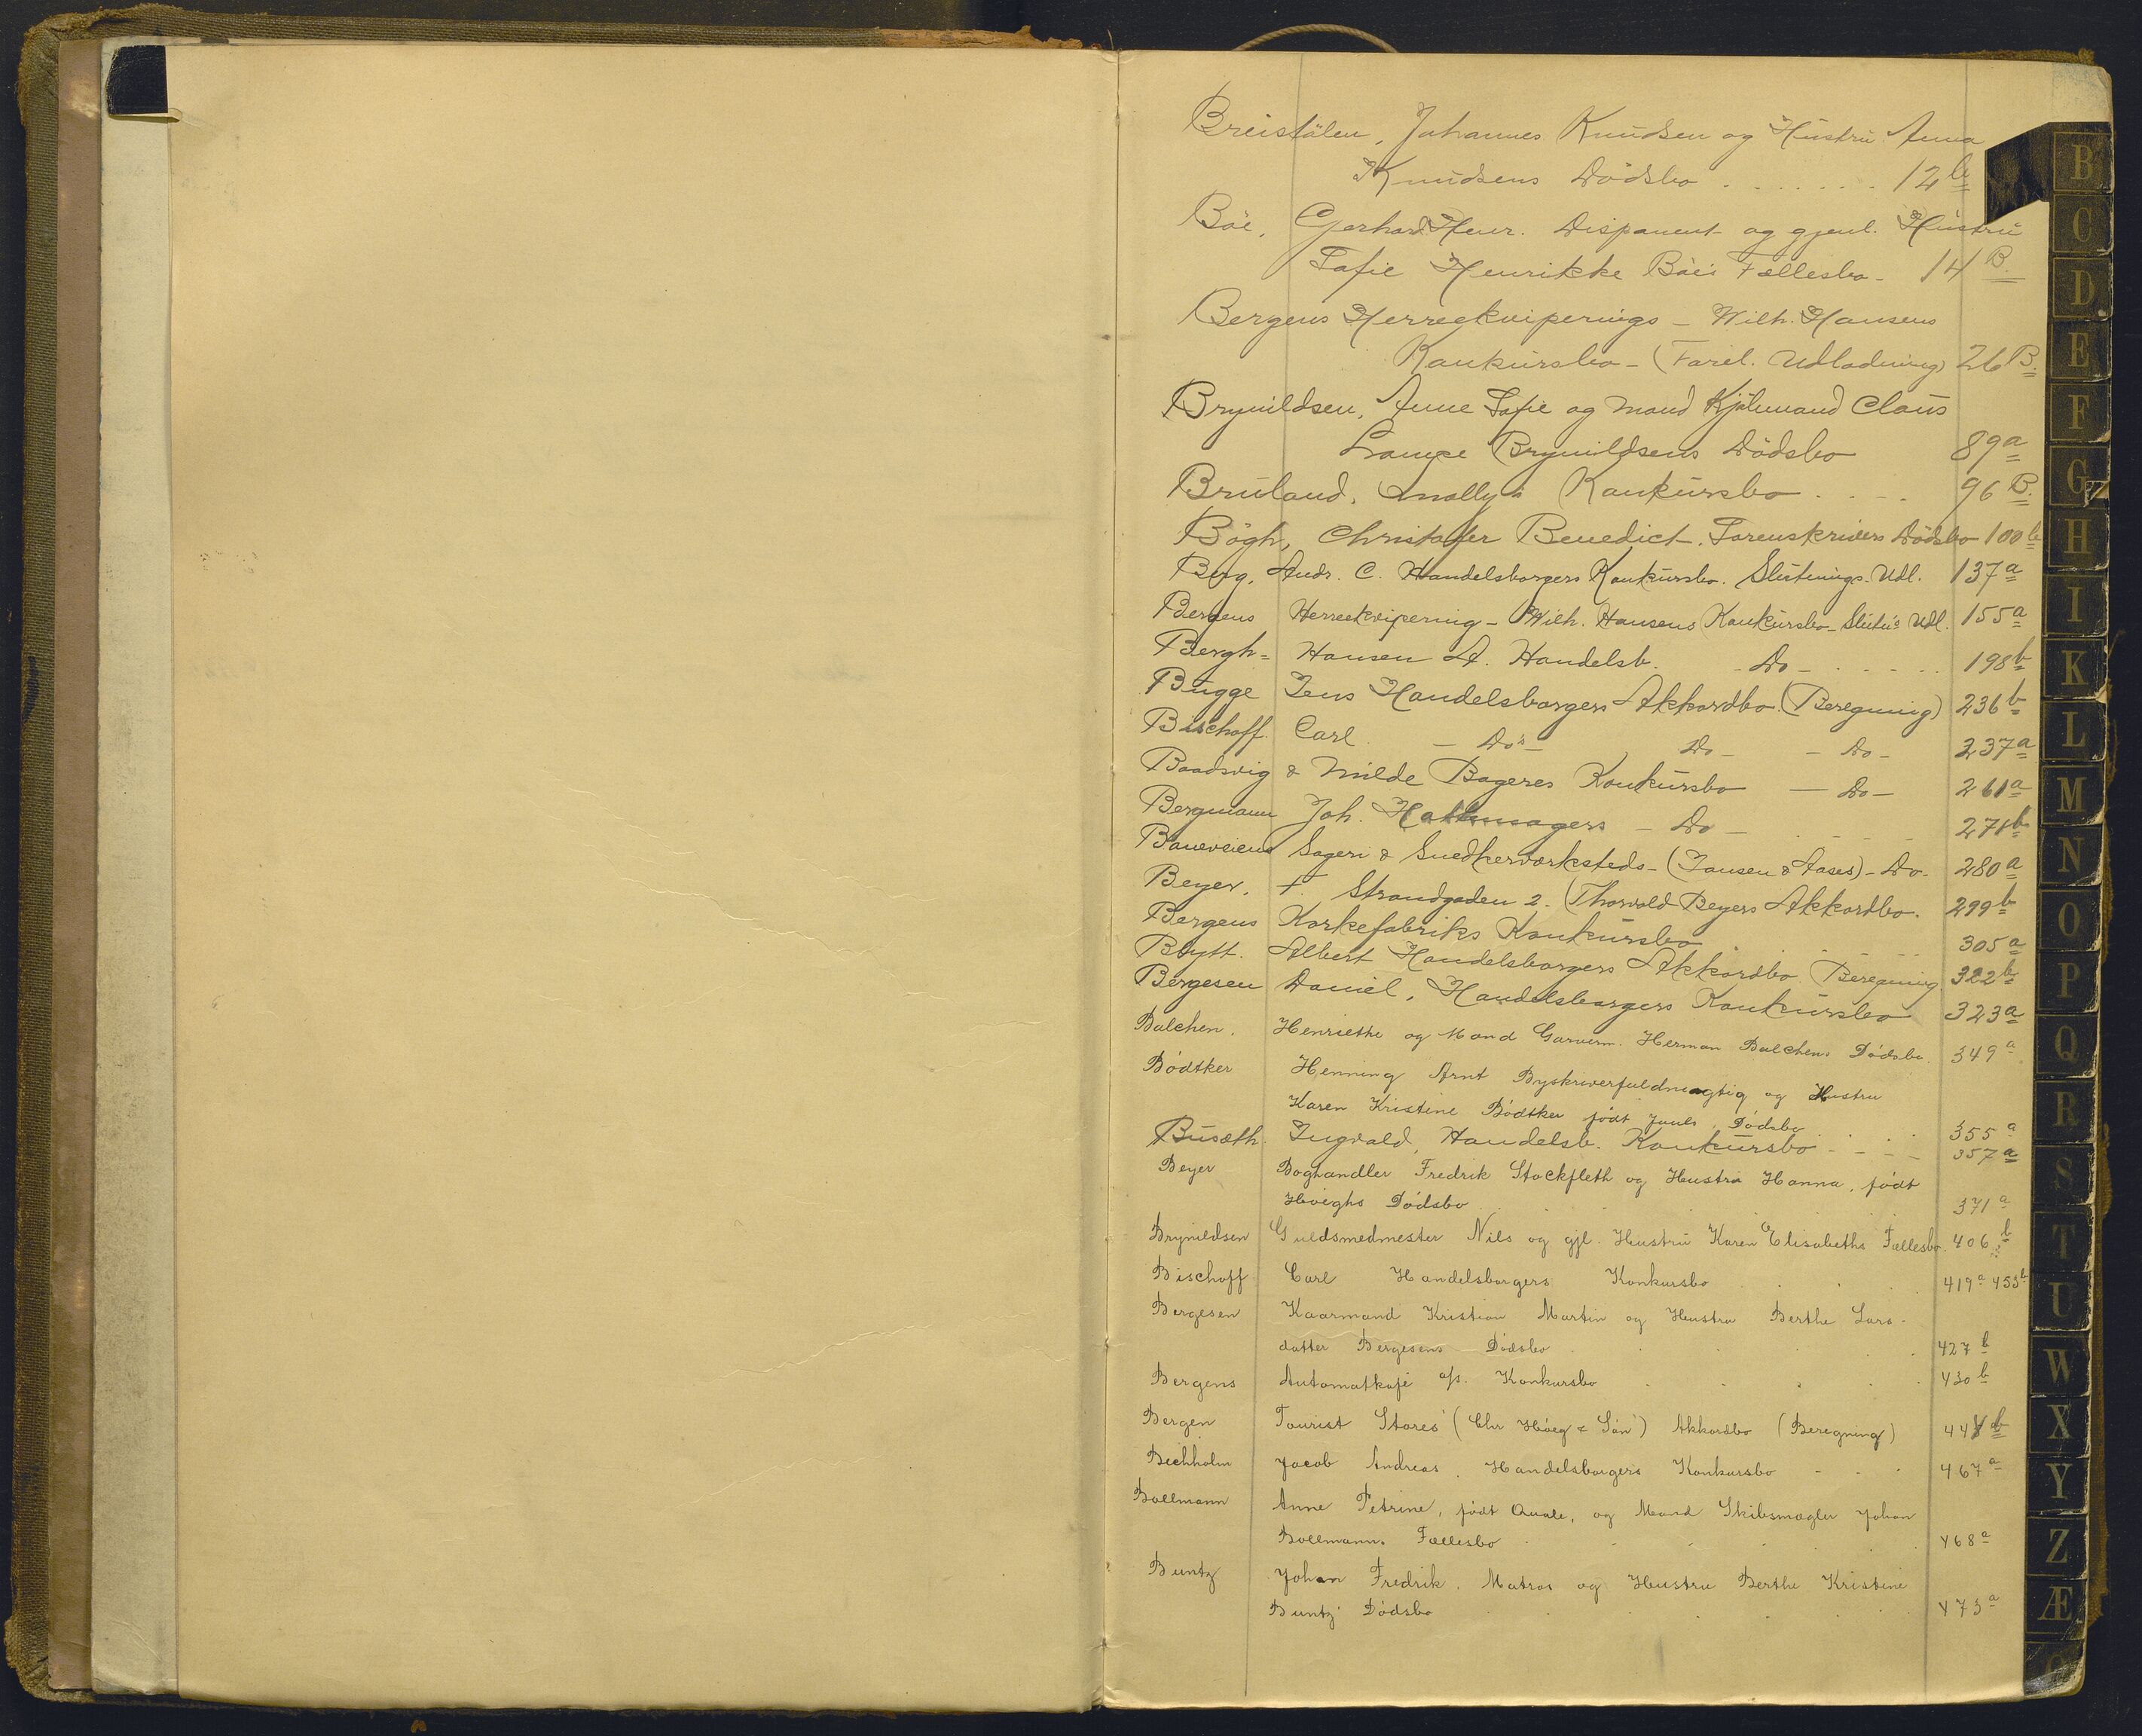 Breistölen, Johannes Knudsen og Hustru Anna
Knudsens Dödsbo . . . . . . . 12 b
Böe, Gerhard Henr. Disponent og gjenl. Hustru
Sofie Henrikke Böe's Fællesbo - 14 B.
Bergens Herreekviperings - Wilh. Hansens
Konkursbo - (Forel. Udlodning) 26 B.
Brynildsen, Anne Sofie og Mand Kjölmand Claus
Lampe Brynildsens Dödsbo 89 a
Bruland, Molly's Konkursbo . . - . 96 B.
Bögh, Christoffer Benedict. Sorenskrivers Dödsbo 100 b
Berg, Andr. C. Handelsborgers Konkursbo. Slutnings-Udl. 137 a
Bergens Herreekvipering - Wilh. Hansens Konkursbo - Slutn's Udl. 155 a
Bergh- Hansen A. Handelsb. - Do - . . - . . 198 b
Bugge Jens Handelsborgers Akkordbo. (Beregning) 236 b
Bischoff. Carl - Do's - Do - - Do - 237 a
Baadsvig & Milde Bageres Konkursbo - Do - 261 a
Bergmann Joh. Hattemagers - Do - . . - - 271 b
Baneveiens Sageri & Snedkerværksteds - (Jansen & Aases) - Do - 280 a
Beyer, F. Strandgaden 2. (Thorvald Beyers Akkordbo. 299 b
Bergens Korkefabriks Konkursbo . . . . . 305 a
Blytt. Albert Handelsborgers Akkordbo Beregning. 322 b
Bergesen Daniel, Handelsborgers Konkursbo 323 a
Balchen. Henriette og Mand Garverm. Herman Balchens Dödsbo. 349 a
Bödtker Henning Arnt Byskriverfuldmægtig og Hustru
Karen Kristine Bödtker født Juuls Dödsbo . . . . 355 a
Busæth. Ingvald, Handelsb. Konkursbo - - - - 357 a
Beyer Boghandler Fredrik Stockfleth og Hustru Hanna, født
Hveighs Dödsbo . . . . . 371 a
Brynildsen Guldsmedmester Nils og gjl. Hustru Karen Elisabeths Fællesbo. 406 b
Bischoff Carl Handelsborgers Konkursbo . . . 419 a 453 b
Bergesen Kaarmand Kristian Martin og Hustru Berthe Lars-
datter Bergesens Dödsbo . . . . . 427 b
Bergens Automatkafé a/s. Konkursbo . . . . . 430 b
Bergen Tourist Stores (Chr Höeg & Sön) Akkordbo (Beregning) 444 b
Bechholm Jacob Andreas. Handelsborgers Konkursbo - . . 467 a
Bollmann Anne Petrine, født Quale, og Mand Skibsmægler Johan
Bollmanns Fællesbo . . . . . 468 a
Buntz Johan Fredrik. Matros og Hustru Berthe Kristine
Buntz' Dödsbo . . . . . 473 a
B
C
D
E
F
G
H
I
K
L
M
N
O
P
Q
R
S
T
U
W
X
Y
Z
Æ